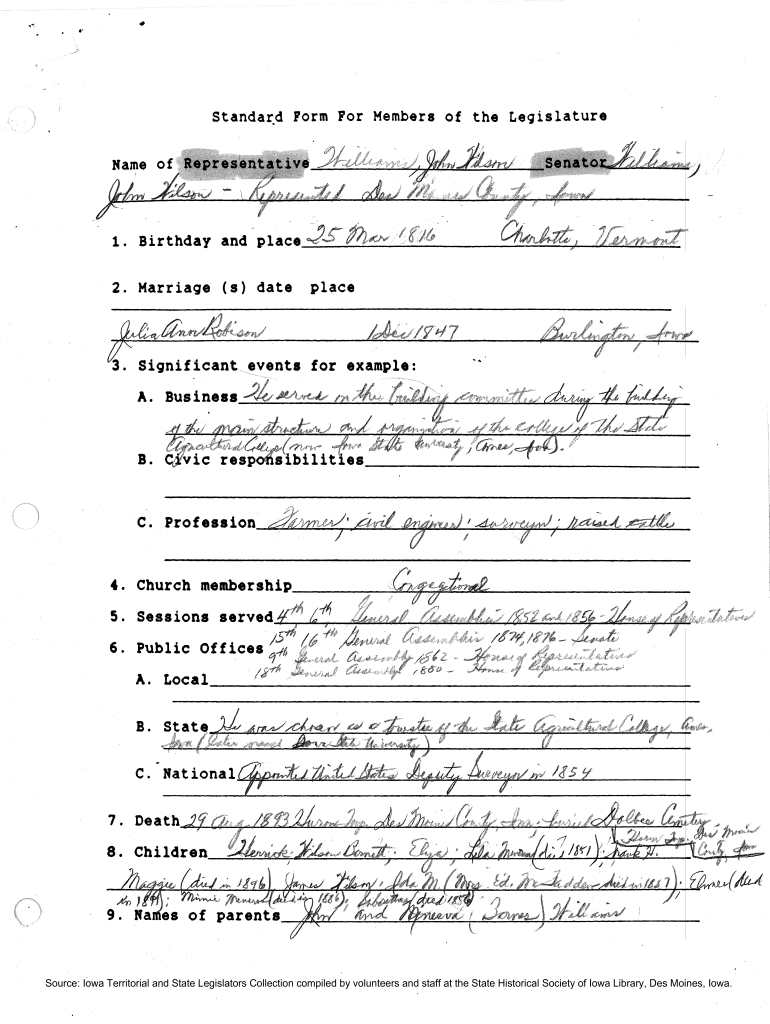 Standard Form For Members of the Legislature
Name of Representative Williams, John Wilson Senator Williams,
John Wilson - Represented Des Moines County, Iowa
1. Birthday and place 25 Mar 1816 Charlotte, Vermont
2. Marriage (s) date place
Julia Ann Robison 1 Dec 1847 Burlington, Iowa
3. Significant events for example:
A. Business He served on the building committee during the building
of the main structure and organization of the college of the State
Agricultural College (now Iowa State University, Ames, Iowa).
B. Civic responsibilities
C. Profession Farmer; civil engineer; surveyor; raised cattle
4. Church membership Congegtional
5. Sessions served 4th, 6th, General Assemblies 1852 and 1856 - House of Representatives
15th, 16th General Assemblies 1874, 1876 - Senate
6. Public Offices 9th General Assembly 1862 - House of Representatives
18th General Assembly 1880 - House of Representatives
A. Local
B. State He was chosen as a trustee of the State Agricultural College, Ames,
Iowa (later named Iowa State University)
C. National Appointed United States Deputy Surveyor in 1854
7. Death 29 Aug 1893 Huron Twp. Des Moines County, Iowa; buried Dolbee Cemetery,
Huron Twp. Des Moines
County, Iowa
8. Children Herrick; Wilson; Eliza; (died 1881); Frank H.
Maggie (died in 1896); James Wilson; Ida M. (Mrs. Ed. McFadden - died in 1887); Elmer (died
in 1891); Minnie Minerva (died in 1886); (died 1856)
9. Names of parents John and Minerva (Barnes) Williams
Source: Iowa Territorial and State Legislators Collection compiled by volunteers and staff at the State Historical Society of Iowa Library, Des Moines, Iowa.